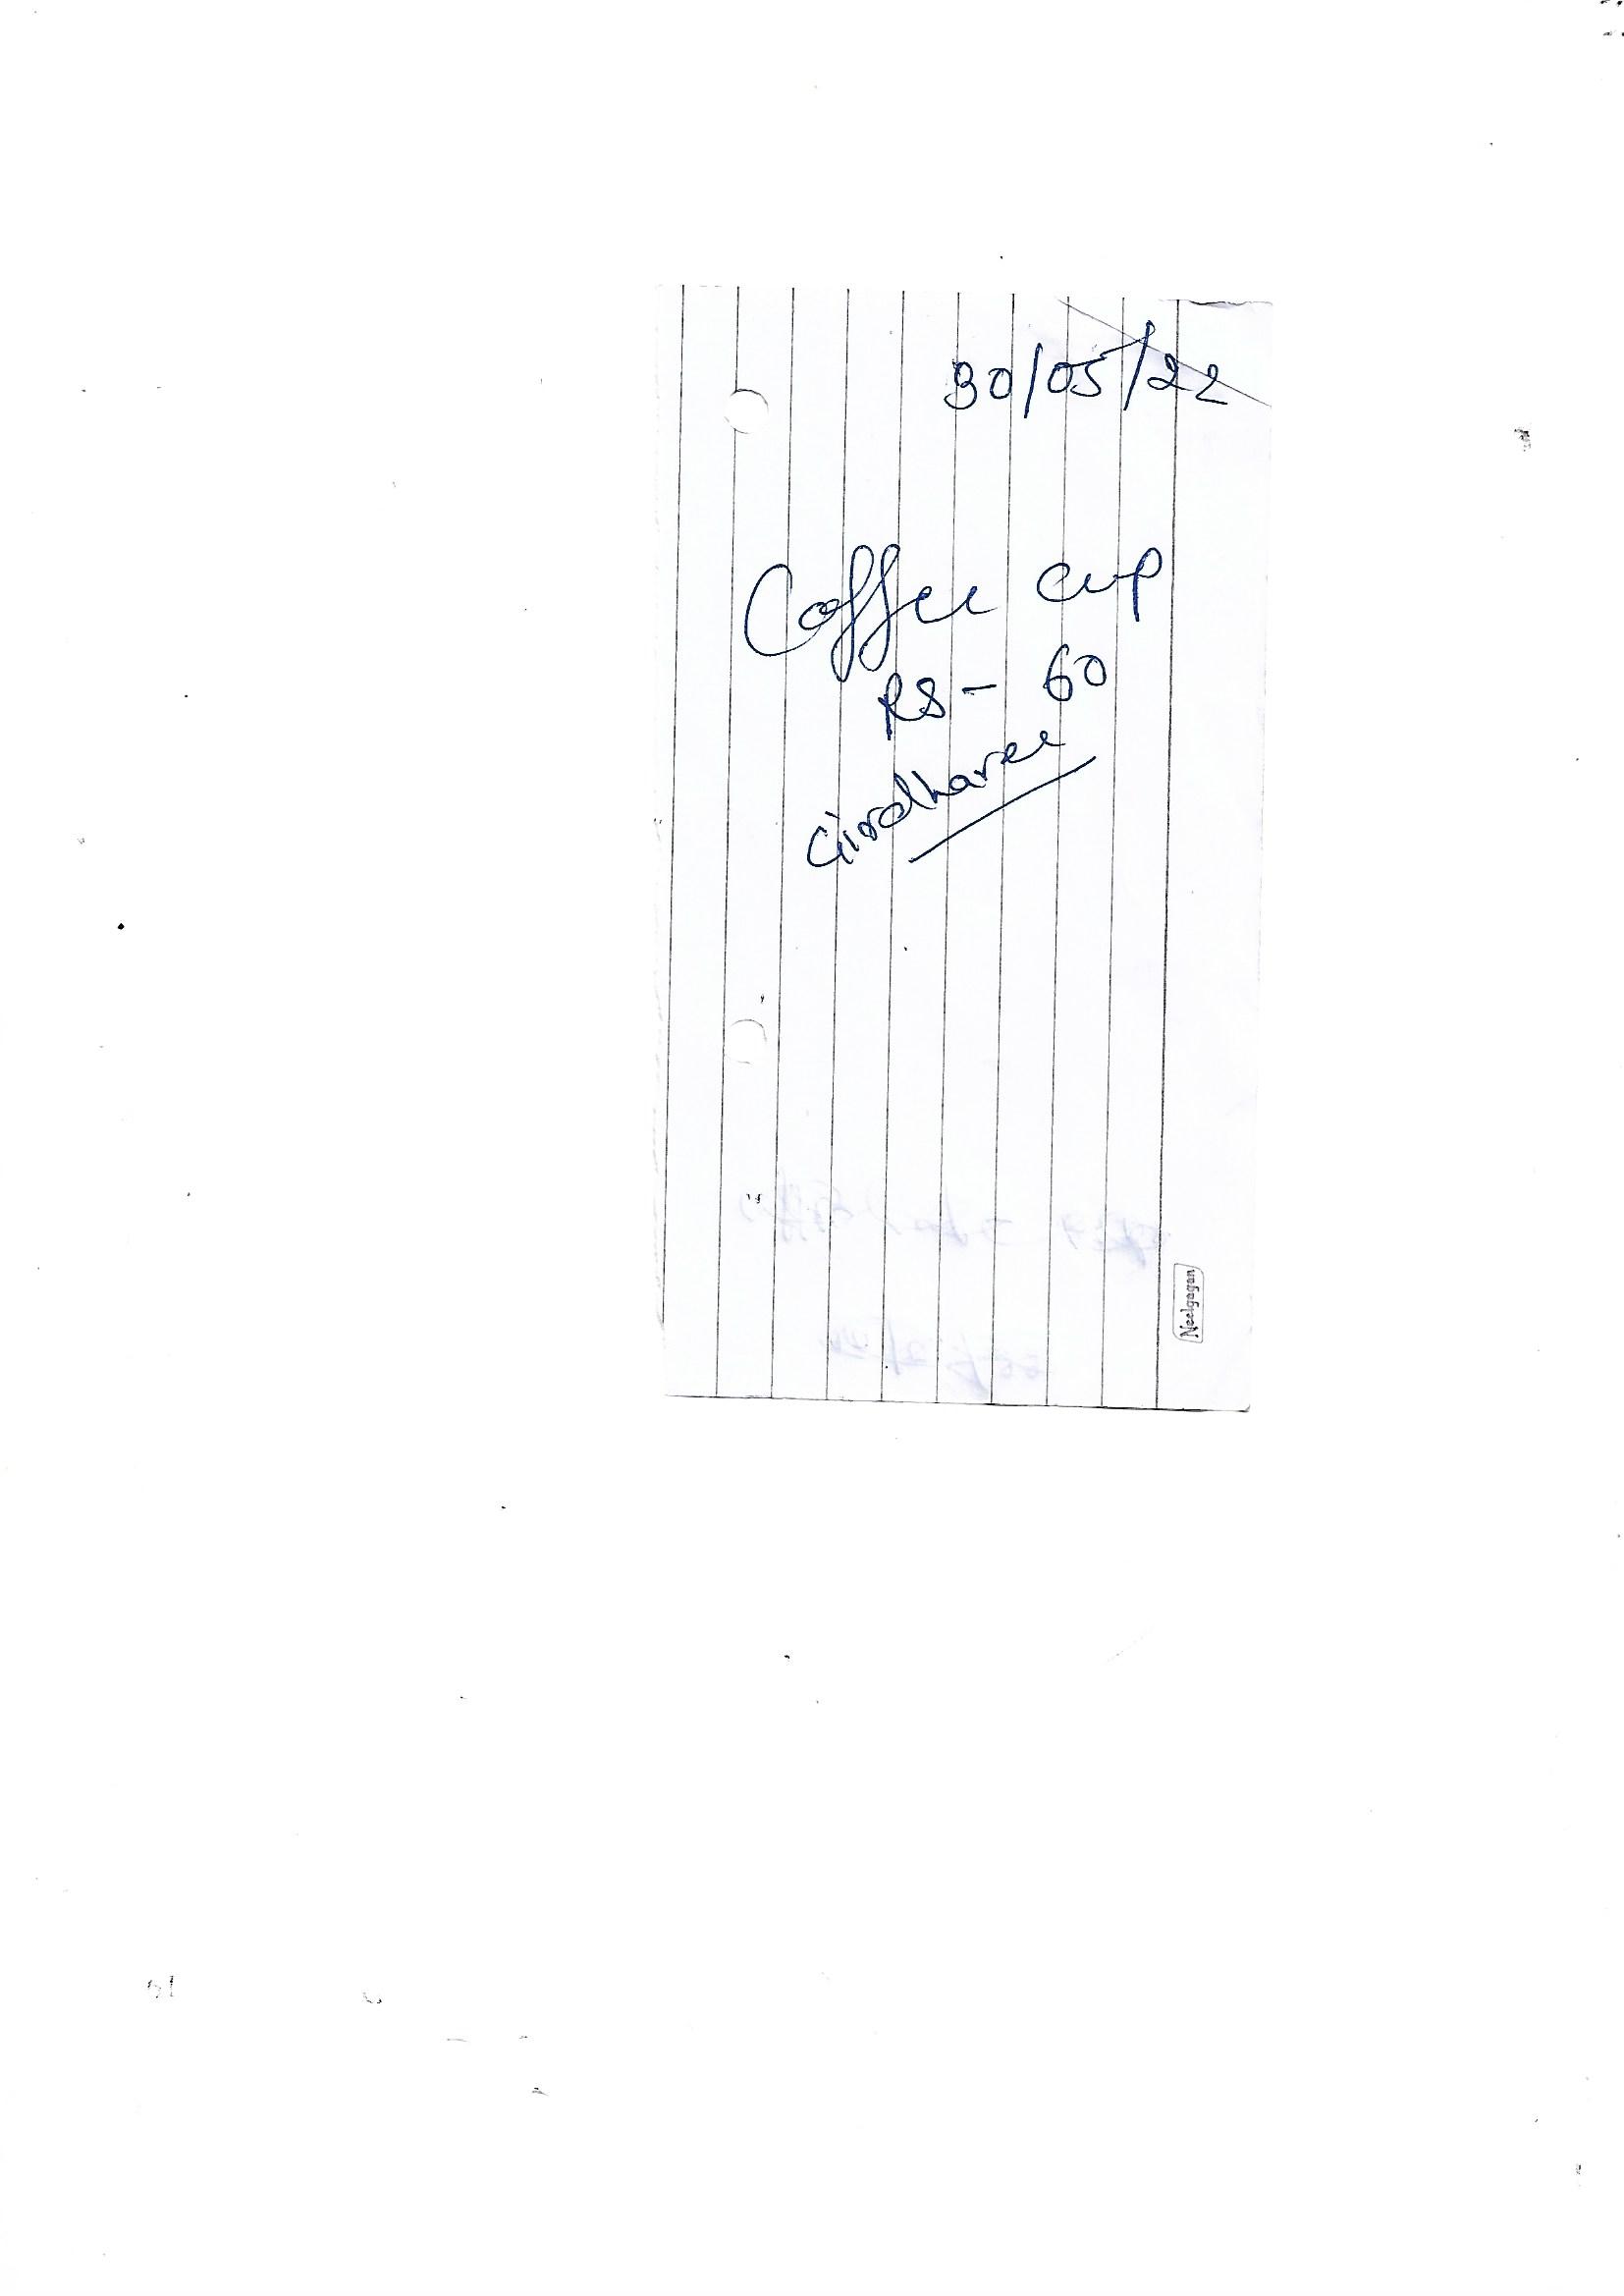 30/05/22
Coffee cup
RS - 60
Girdharee
Neelgagan